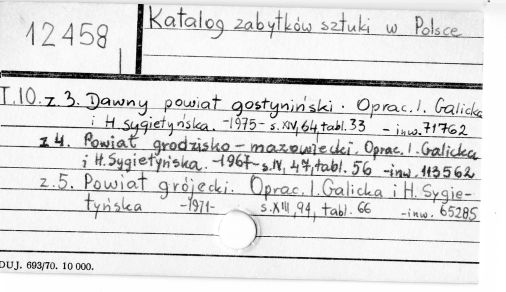 12458
Katalog zabytków sztuki w Polsce
T.10. z. 3. Dawny powiat gostyniński. Oprac. I. Galicka
i H. Sygietyńska. -1975- s. XV, 64, tabl. 33 - inw. 71762
z 4. Powiat grodzisko-mazowiecki. Oprac. I. Galicka
i H. Sygietyńska. -1967- s. IV, 47, tabl. 56 - inw. 113562
z. 5. Powiat grójecki. Oprac. I. Galicka i H. Sygie-
tyńska -1971- s. XIII, 94, tabl. 66 - inw. 65285
DUJ. 693/70. 10 000.